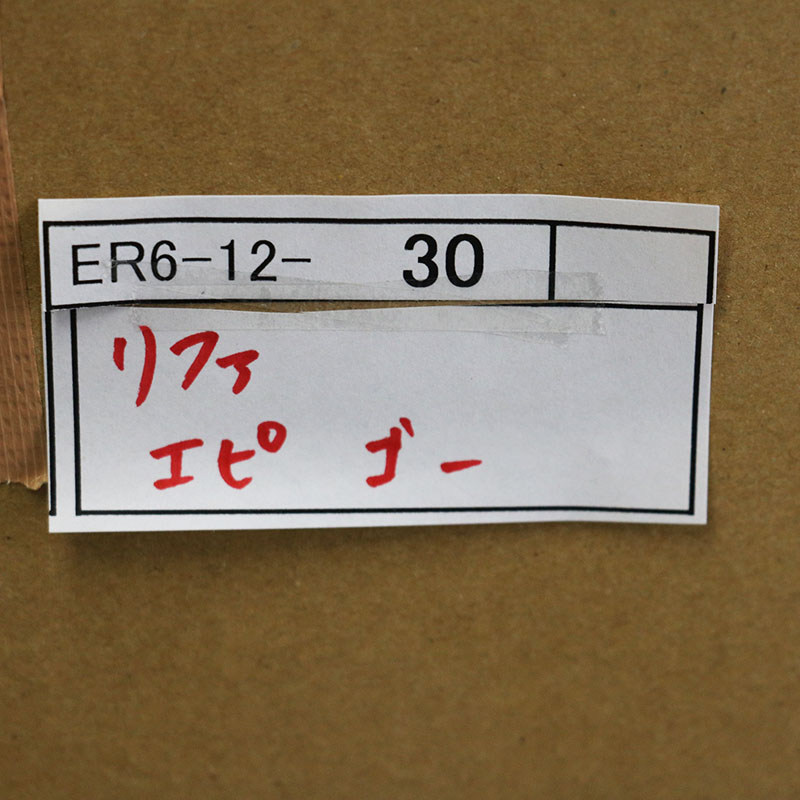 ER6-12- 30
リファ
エピ ゴー